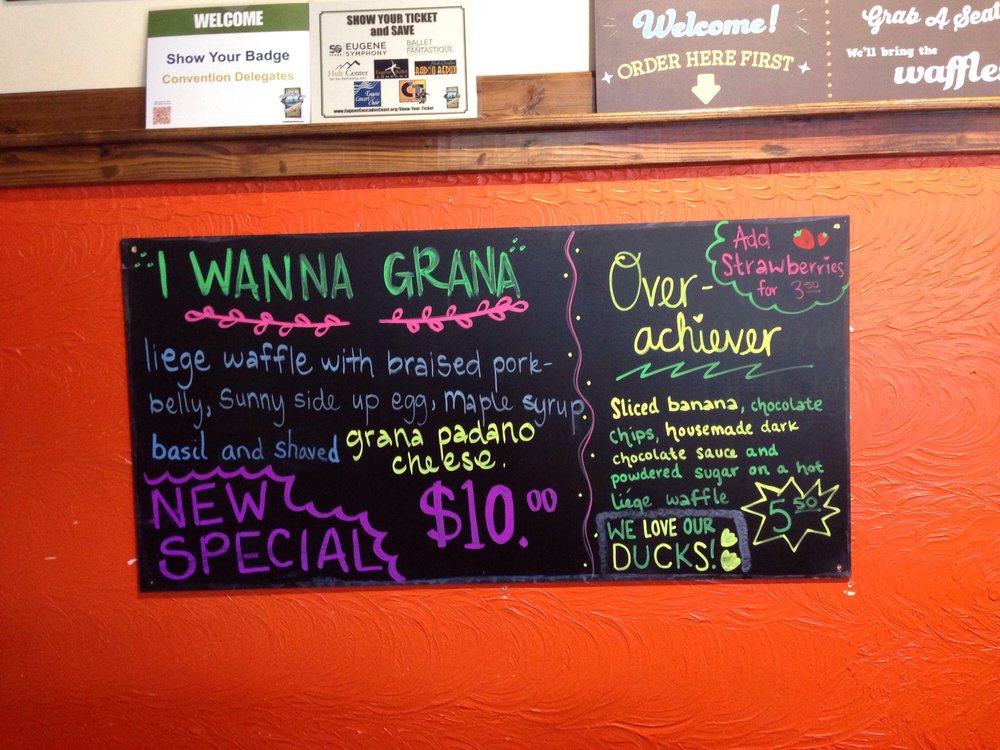 WELCOME
Show Your Badge
Convention Delegates
SHOW YOUR TICKET
and SAVE
50 EUGENE SYMPHONY
BALLET FANTASTIQUE
Hult Center
RADIO REDUX
Eugene Concert Choir
www.EugeneCascadesCoast.org/Show-Your-Ticket
Welcome!
ORDER HERE FIRST
Grab A Seat
We'll bring the
waffles
I WANNA GRANA
liege waffle with braised pork-
belly, sunny side up egg, maple syrup
basil and shaved grana padano
cheese.
NEW
SPECIAL
$10.00
Over-
achiever
Add
Strawberries
for 3.50
Sliced banana, chocolate
chips, housemade dark
chocolate sauce and
powdered sugar on a hot
liége waffle
5.50
WE LOVE OUR
DUCKS!